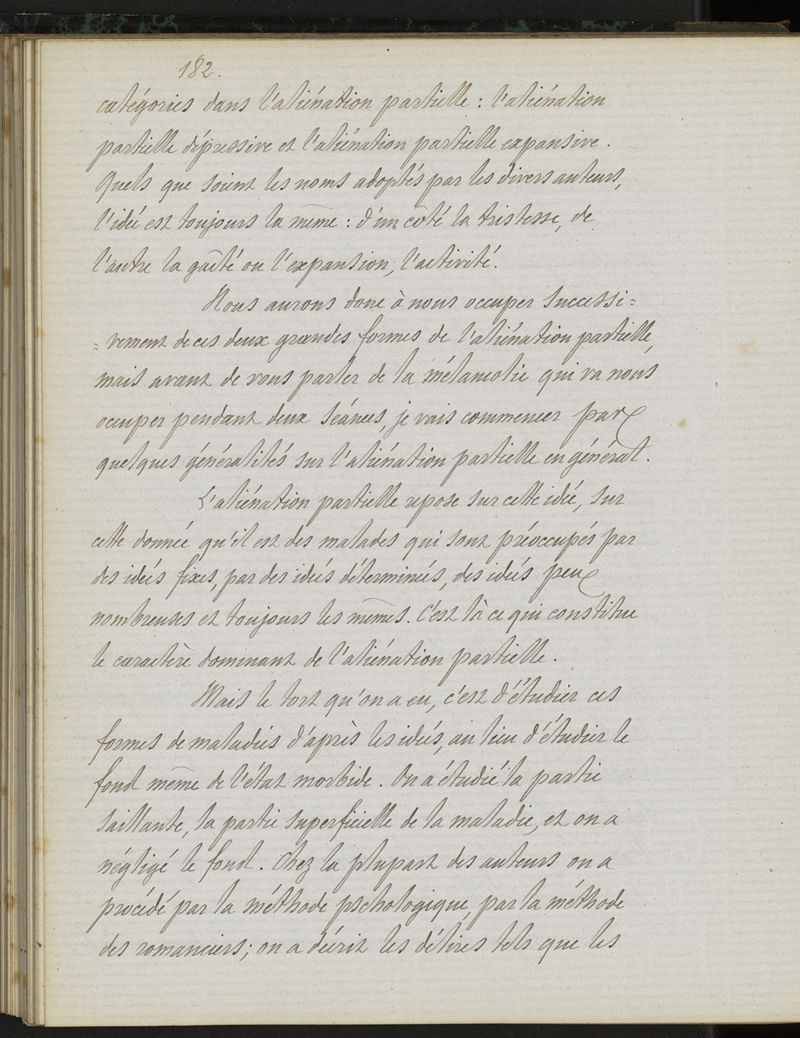 182.
catégories dans l'aliénation partielle : l'aliénation
partielle dépressive et l'aliénation partielle expansive.
Quels que soient les noms adoptés par les divers auteurs,
l'idée est toujours la même : d'un côté la tristesse, de
l'autre la gaîté ou l'expansion, l'activité.
Nous aurons donc à nous occuper successi=
=vement de ces deux grandes formes de l'aliénation partielle,
mais avant de vous parler de la mélancolie qui va nous
occuper pendant deux séances, je vais commencer par
quelques généralités sur l'aliénation partielle en général.
L'aliénation partielle repose sur cette idée, sur
cette donnée qu'il est des malades qui sont préoccupés par
des idées fixes, par des idées déterminées, des idées peu
nombreuses et toujours les mêmes. C'est là ce qui constitue
le caractère dominant de l'aliénation partielle.
Mais le tort qu'on a eu, c'est d'étudier ces
formes de maladies d'après les idées, au lieu d'étudier le
fond même de l'état morbide. On a étudié la partie
saillante, la partie superficielle de la maladie, et on a
négligé le fond. Chez la plupart des auteurs on a
procédé par la méthode pschologique, par la méthode
des romanciers; on a décrit les délires tels que les